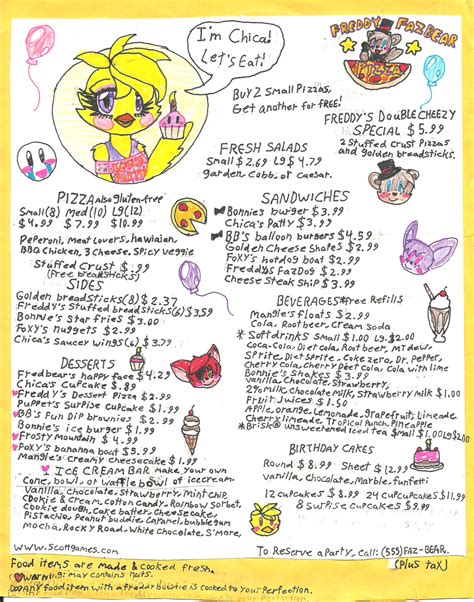 I'm Chica!
Let's Eat!
FREDDY FAZBEAR
PIZZA
BUY 2 Small Pizzas,
Get another for FREE!
FREDDY'S DOUBLE CHEEZY
SPECIAL $5.99
2 Stuffed Crust Pizzas
and golden breadsticks.
FRESH SALADS
Small $2.69 Lg $4.79
garden, cobb, or caesar.
PIZZA also gluten-free
Small(8) Med(10) Lg(12)
$4.99 $7.99 $10.99
Peperoni, Meat Lovers, hawaiian,
BBQ Chicken, 3 Cheese, Spicy veggie
Stuffed Crust $.99
(Free breadsticks)
SIDES
Golden breadsticks(8) $2.37
Freddy's Stuffed breadsticks(6) $3.59
Bonnie's Star fries $3.00
Foxy's nuggets $2.99
Chica's Saucer wings(6) $3.79
DESSERTS
Fredbear's happy face $4.29
Chica's Cupcake $1.99
Freddy's Dessert Pizza $2.99
Puppet's Surprise Cupcake $1.99
BB's Fun Dip brownies $2.99
Bonnie's ice burger $1.99
Frosty Mountain $4.99
Foxy's banana boat $5.99
Mangle's creamy cheesecake $1.99
ICE CREAM BAR make your own
Cone, bowl, or waffle bowl of icecream
Vanilla, Chocolate, Strawberry, Mint chip,
Cookie & cream, Cotton Candy, Rainbow Sorbet,
Cookie dough, Cake batter, Cheesecake,
Pistachio, Peanut buddie, Caramel, bubblegum
Mocha, Rocky Road, White Chocolate, S'more,
www.Scottgames.com
SANDWICHES
Bonnies burger $3.99
Chica's Patty $3.99
BB's balloon burgers $4.59
Golden Cheese Shapes $2.99
Foxy's hotdog boat $2.99
Freddys FazDog $2.99
Cheese Steak Ship $3.99
BEVERAGES *free Refills
Mangle's floats $2.99
Cola, Rootbeer, Cream Soda
* Softdrinks Small $1.00 LG $2.00
Coca-Cola, Diet cola, Root beer, MT dew,
Sprite, Diet Sprite, Coke zero, Dr. Pepper,
Cherry cola, Cherry Diet cola, Cola with lime
Bonnie's Shakes $3.99
vanilla, Chocolate, Strawberry,
2% milk, Chocolate milk, Strawberry milk $1.00
Fruit Juices $1.50
Apple, orange, Lemonade, grapefruit, limeade
Cherry limeade, Tropical Punch, Pineapple
*Brisk® unsweetened iced tea Small $1.00 LG $2.00
BIRTHDAY CAKES
Round $8.99 Sheet $12.99
vanilla, Chocolate, Marble, funfetti
12 cupcakes $8.99 24 cupcupcakes $11.99
8 surprise cupcakes $9.99
To Reserve a Party, call: (555) FAZ-BEAR.
(Plus tax)
Food items are made & cooked fresh.
Warning: may contain nuts.
any food item with a freddy bowtie is cooked to your Perfection.